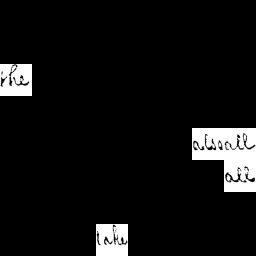 the
assail
all
take